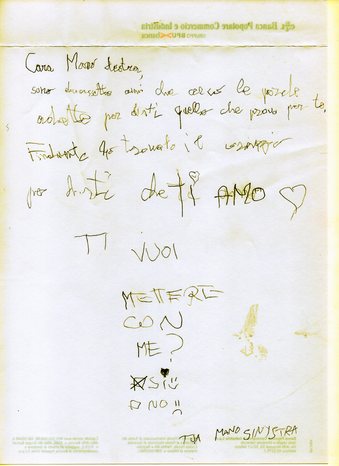 Cara Mano destra,
sono anni che cerco le parole
adatte per dirti quello che provo per te.
Finalmente ho trovato il coraggio
per dirti che TI AMO ♡
TI VUOI
METTERE
CON
ME?
SI
NO
TUA MANO SINISTRA